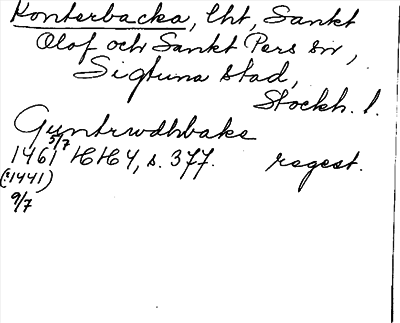 Konterbacka, lht, Sankt
Olof och Sankt Pers sn,
Sigtuna stad,
Stockh. l.
Guntrwdhbake
5/7
1461 HH 4, s. 377. regest.
(:1441)
9/7